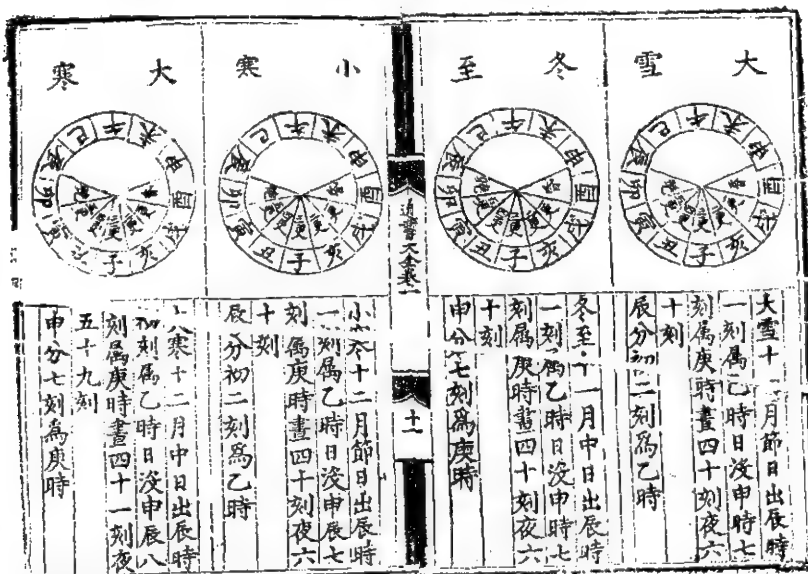 大雪
午未申酉戌亥子丑寅卯辰巳
大雪十一月節日出辰時
一刻属乙時日没申時七
刻属庚時晝四十刻夜六
十刻
辰分初二刻爲乙時
冬至
午未申酉戌亥子丑寅卯辰巳
冬至十一月中日出辰時
一刻属乙時日没申時七
刻属庚時晝四十刻夜六
十刻
申分七刻爲庚時
通書大全卷一
十一
小寒
午未申酉戌亥子丑寅卯辰巳
小寒十二月節日出辰時
一刻属乙時日没申辰七
刻属庚時晝四十刻夜六
十刻
辰分初二刻爲乙時
大寒
午未申酉戌亥子丑寅卯辰巳
大寒十二月中日出辰時
初刻属乙時日没申辰八
刻属庚時晝四十一刻夜
五十九刻
申分七刻爲庚時